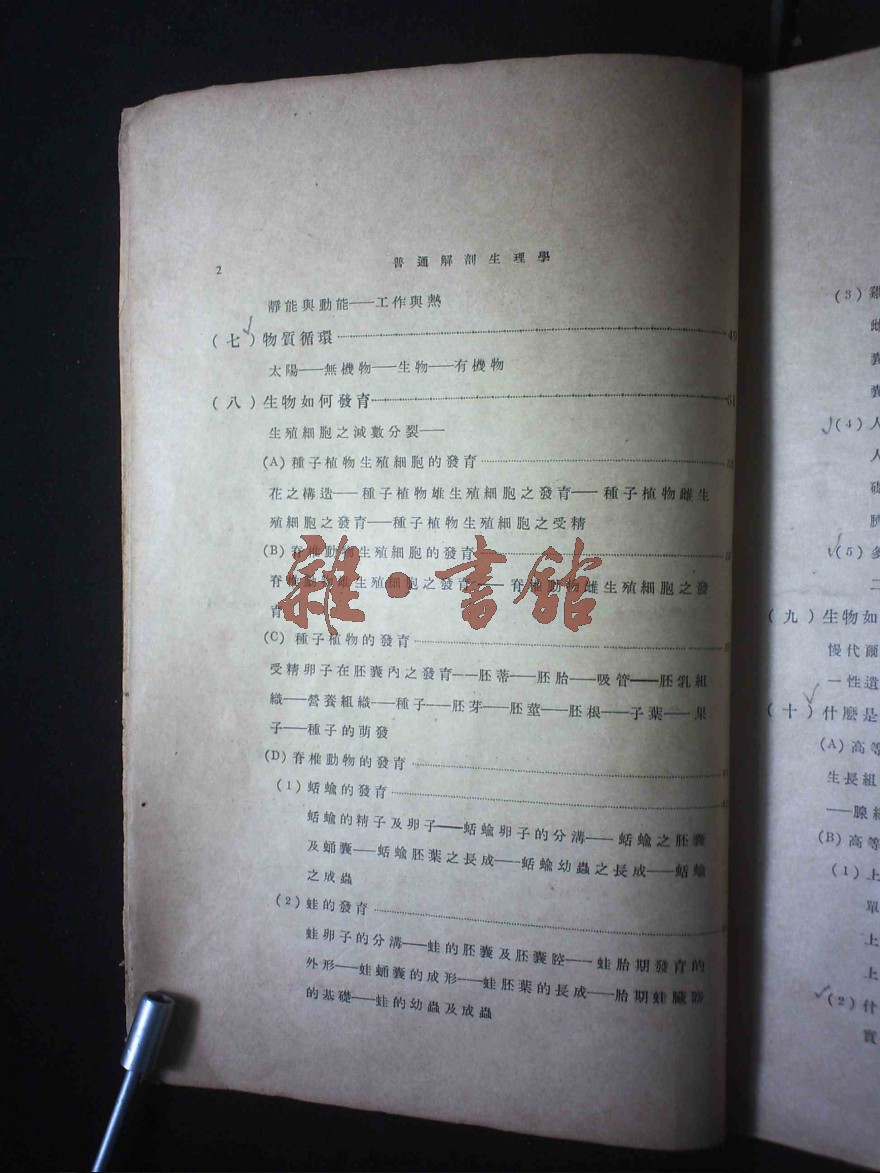 2 普通解剖生理學
靜能與動能——工作與熱
(七)物質循環 49
太陽——無機物——生物——有機物
(八)生物如何發育 51
生殖細胞之減數分裂——
(A)種子植物生殖細胞的發育
花之構造——種子植物雄生殖細胞之發育——種子植物雌生
殖細胞之發育——種子植物生殖細胞之受精
(B)脊椎動物生殖細胞的發育
脊椎動物雄生殖細胞之發育——脊椎動物雌生殖細胞之發
育
(C)種子植物的發育
受精卵子在胚囊內之發育——胚蒂——胚胎——吸管——胚乳組
織——營養組織——種子——胚芽——胚莖——胚根——子葉——果
子——種子的萌發
(D)脊椎動物的發育
(1)蛞蝓的發育
蛞蝓的精子及卵子——蛞蝓卵子的分溝——蛞蝓之胚囊
及蛹囊——蛞蝓胚葉之長成——蛞蝓幼蟲之長成——蛞蝓
之成蟲
(2)蛙的發育
蛙卵子的分溝——蛙的胚囊及胚囊腔——蛙胎期發育的
外形——蛙蛹囊的成形——蛙胚葉的長成——胎期蛙臟腑
的基礎——蛙的幼蟲及成蟲
雜·書館
(3)雞
雌
囊
囊
(4)人
人
(5)多
二
(九)生物如
慢代爾
一性遺
(十)什麼是
(A)高等
生長組
——腺組
(B)高等
(1)上
單
上
上
(2)什
實